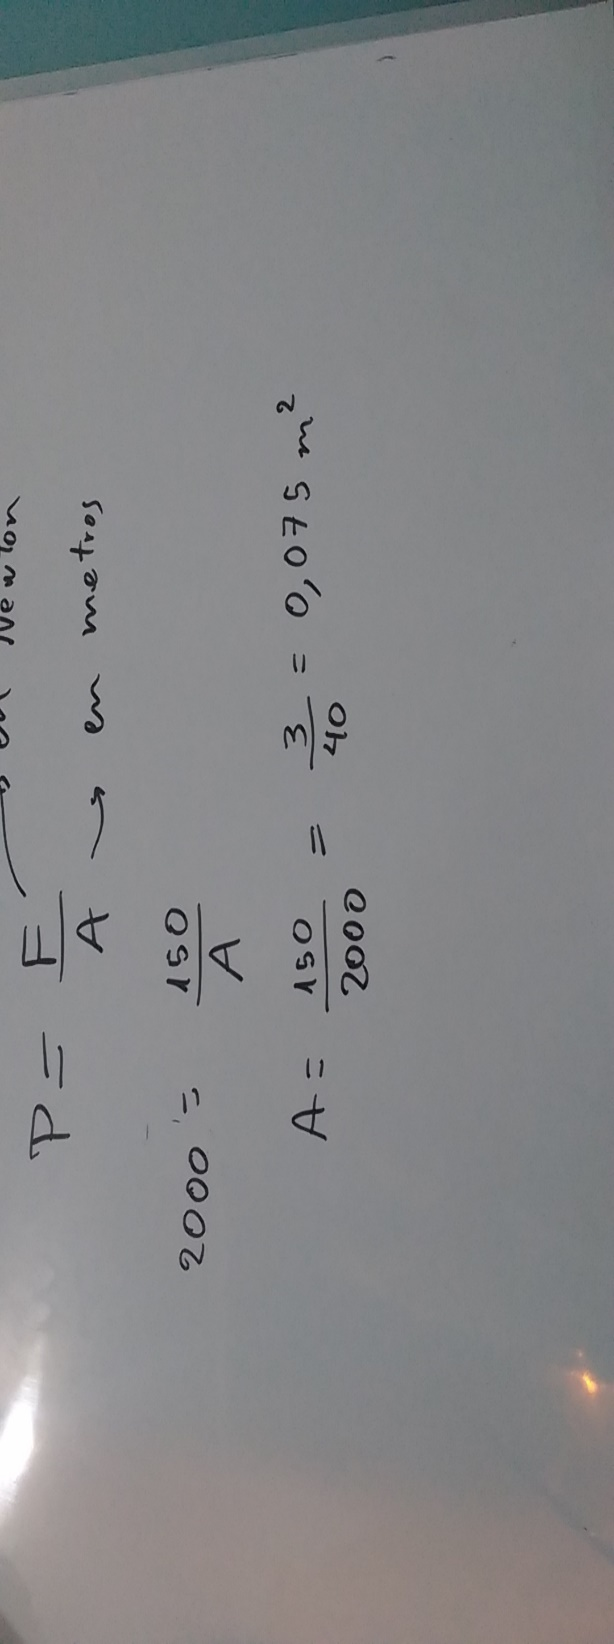 en Newton
P = F/A → en metros
2000 = 150/A
A = 150/2000 = 3/40 = 0,075 m²